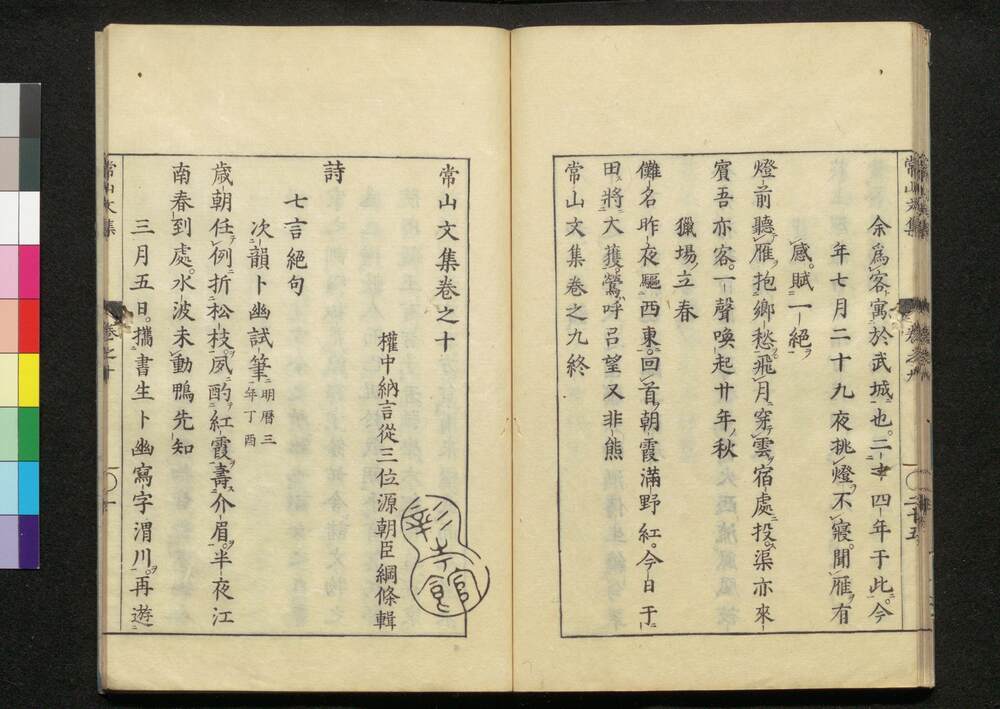 余爲客寓於武城也二十四年于此今
年七月二十九夜挑燈不寢聞雁有
感賦一絕
燈前聽雁抱鄉愁飛月穿雲宿處投渠亦來
賓吾亦客一聲喚起廿年秋
獵場立春
儺名昨夜驅西東回首朝霞滿野紅今日于
田將大獲鶯呼呂望又非熊
常山文集卷之九終
常山文集卷之十
權中納言從三位源朝臣綱條輯
彰考館
詩
七言絕句
次韻卜幽試筆明曆三年丁酉
歲朝任例折松枝夙酌紅霞壽介眉半夜江
南春到處水波未動鴨先知
三月五日攜書生卜幽寫字渭川再遊
常山文集
卷之十
一